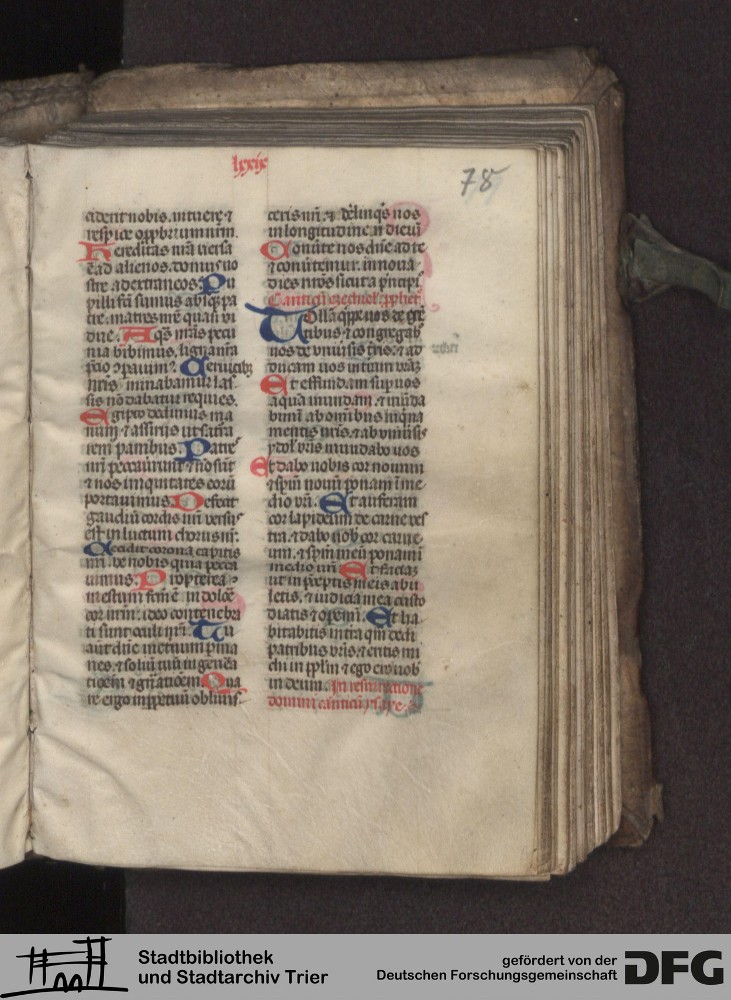 lxxix
78
cident nobis. intuere ⁊
respice opprobrium nrm.
Hereditas nra versa
e ad alienos. domus no
stre ad extraneos. Pu
pilli fci sumus absq; pa
tre. matres nre quasi vi
due. Aqm nram pecu
nia bibimus. ligna nra
pcio cparuim9. Ceruicib;
nris minabamur las
sis nō dabatur requies.
Egipto dedimus ma
num ⁊ assirijs ut satia
rem panibus. Patres
nri peccauerunt ⁊ nō sunt
⁊ nos iniquitates eorū
portauimus. Defecit
gaudiū cordis nri versus
est in luctum chorus nr.
Cecidit corona capitis
nri. ve nobis quia pecca
uimus. Propterea
mestum fcm e in dolore
cor nrm. ideo contenebra
ti sunt oculi nri. Tu
autē dne in eternum pma
nes. ⁊ soliū tuū in genera
tioem ⁊ gnatioem. Qua
re ergo in ppetuū obliuis
ceris nri. ⁊ delinqs nos
in longitudine dierū
Conuerte nos dne ad te
⁊ conuertemur. innoua
dies nros sicut a pncipi
Canticū ezechiel. pphete
Tollā qppe uos de gen
tibus ⁊ congregab
nos de vniuersis tris. ⁊ ad
ducam uos in terram vram
Et effundam sup uos
aqua mundam. ⁊ mūda
bimī ab omibus inqna
mentis vris. ⁊ ab vniuersis
ydol vris mundabo uos
Et dabo uobis cor nouum
⁊ spm nouū ponam ī me
dio vri. Et auferam
cor lapideum de carne ves
tra. ⁊ dabo uob cor carne
um. ⁊ spm meū ponam ī
medio vri Et faciā
ut in preceptis meis abu
letis. ⁊ iudicia mea custo
diatis ⁊ opemī. Et ha
bitabitis in terra qm dedi
patribus vris. ⁊ eritis mi
chi in pplm ⁊ ego ero uob
in deum. In resurrectione
domini canticū ysaye.
Stadtbibliothek
und Stadtarchiv Trier
gefördert von der
Deutschen Forschungsgemeinschaft
DFG